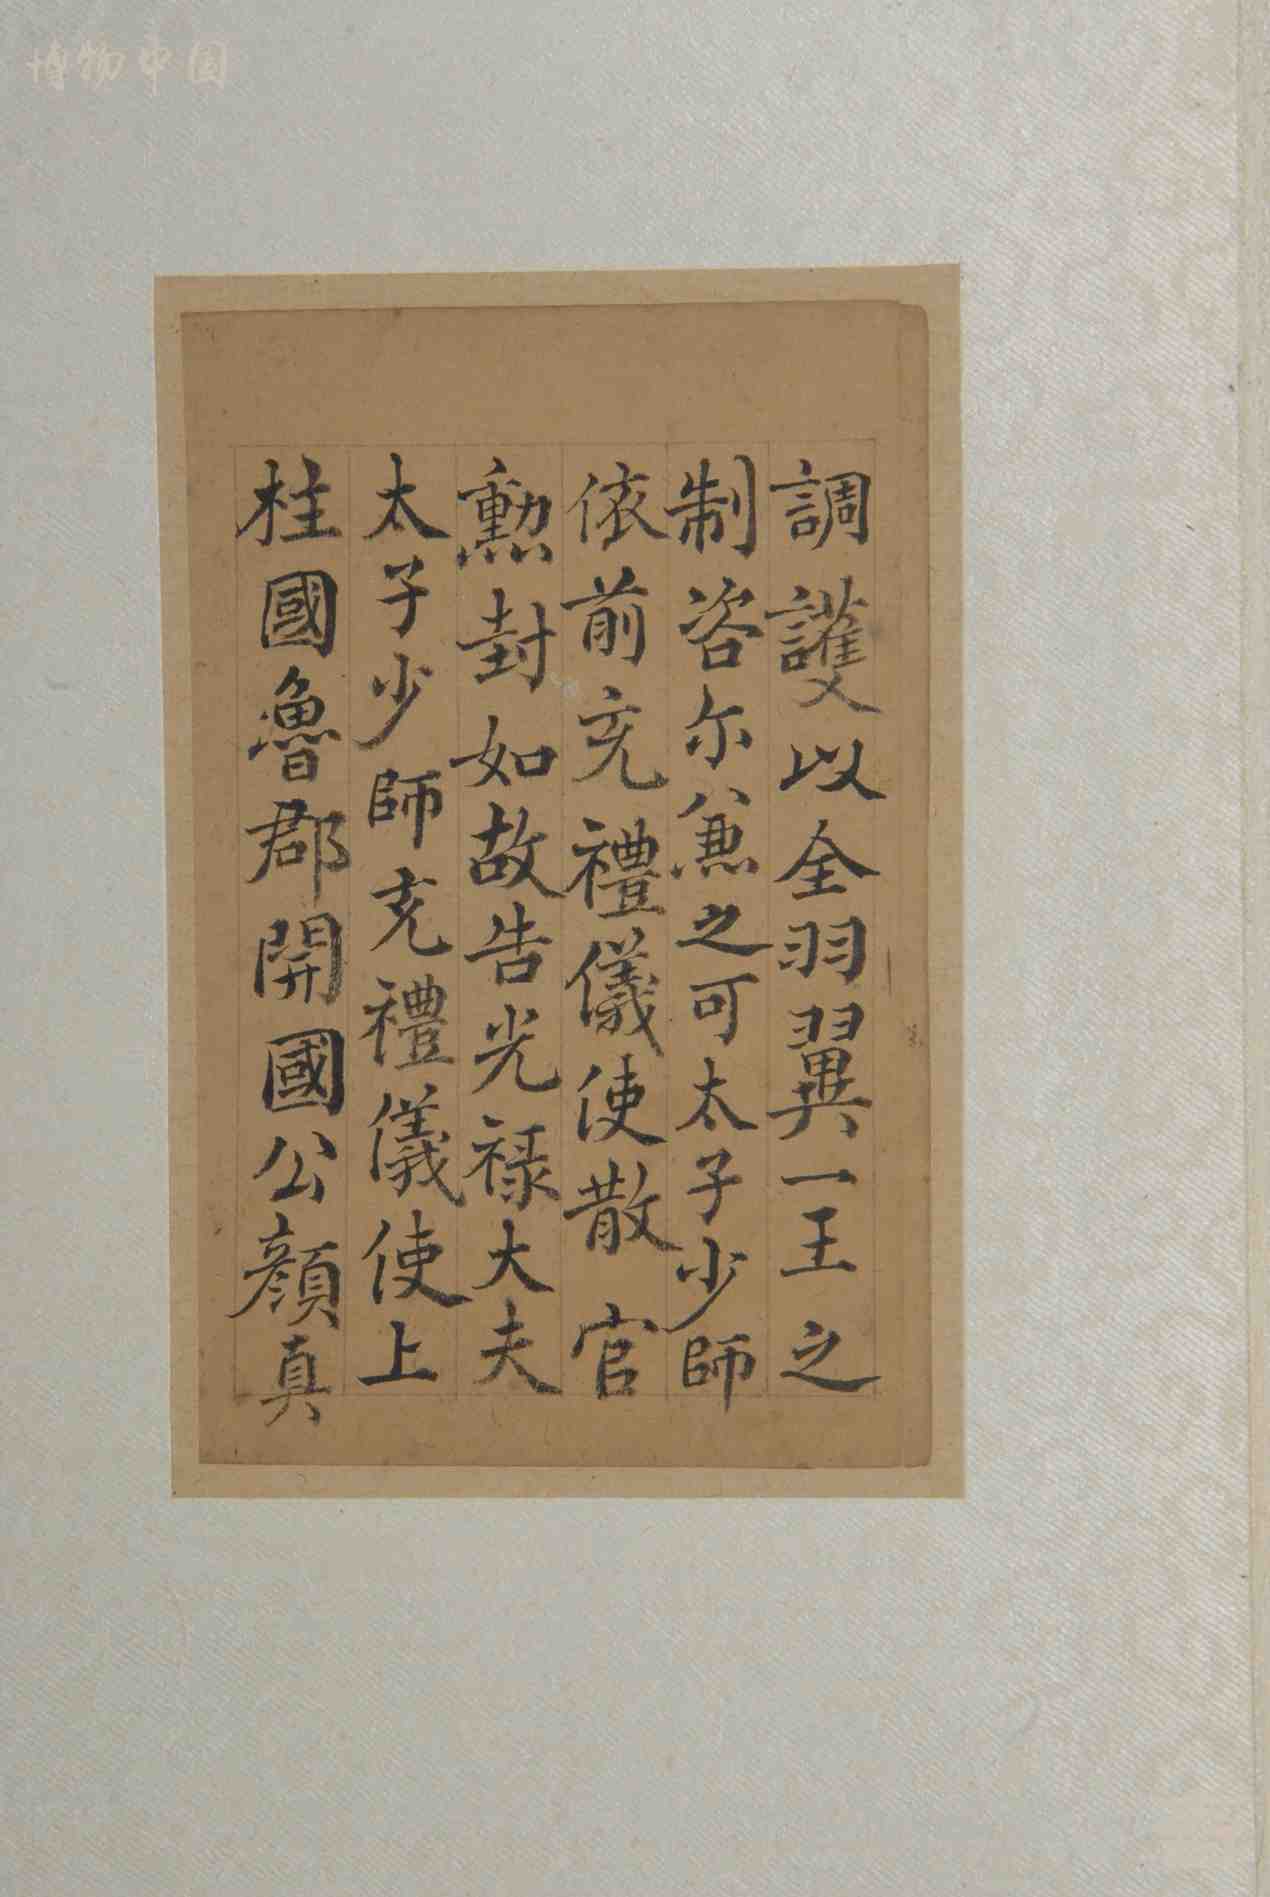 博物中国
調護以全羽翼一王之
制咨尔兼之可太子少師
依前充禮儀使散官
勲封如故告光禄大夫
太子少師充禮儀使上
柱國魯郡開國公顔真